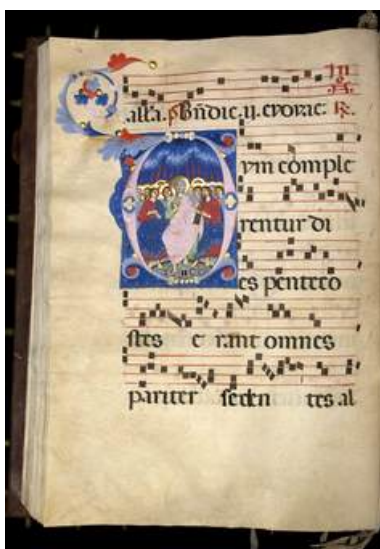 alla. Bñdic. ij. evovae. ℟.
Dvm comple
rentur di
es penteco
stes e rant omnes
pariter seden tes al